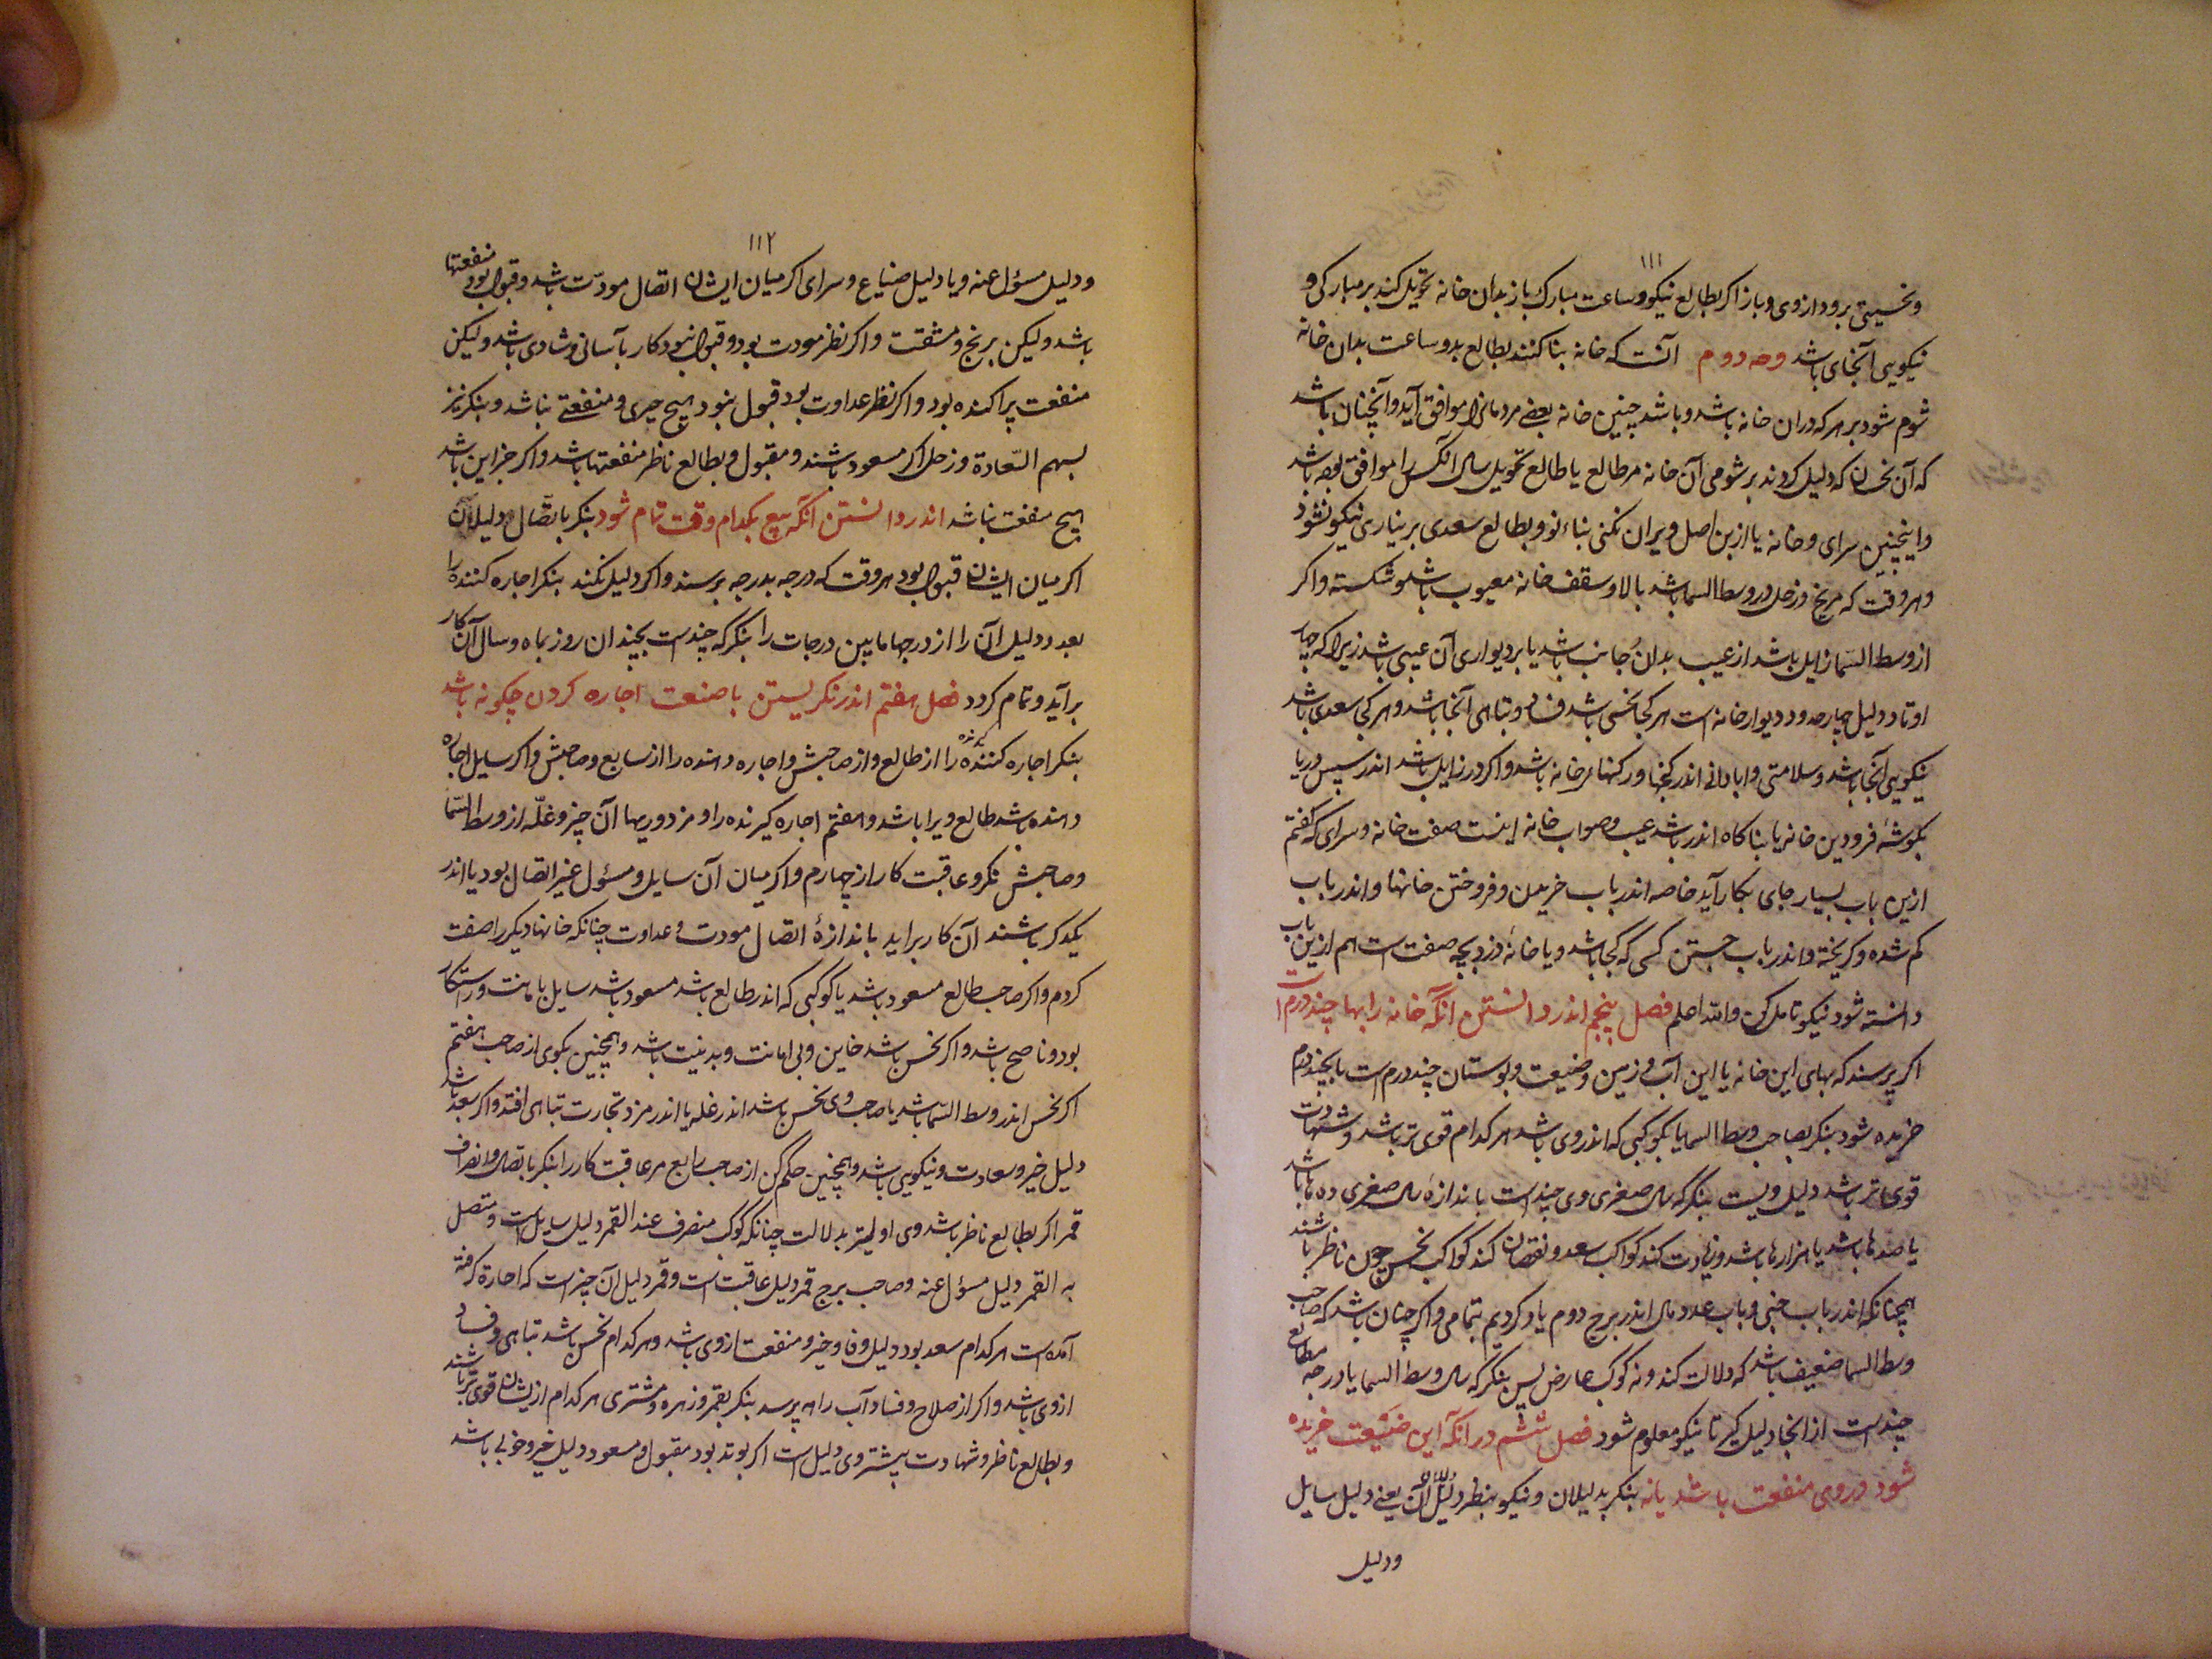 ۱۱۱
ونحسیتی برود ازوی و باز اکر بطالع نیکو وساعت مبارک باز بدان خانه تحویل کند بر مبارکی و
نیکویی آنجای باشد وجه دوم آنست که خانه بنا کنند بطالع بد وساعت بد ان خانه
شوم شود بر هر که دران خانه باشد وباشد چنین خانه بعضی مردمانرا موافق آید وآنچنان باشد
که آن نحسان که دلیل کردند بر شومی آن خانه مر طالع یا طالع تحویل سال آنکس را موافق بوده باشد
واینچنین سرای وخانه یا ازبن اصل ویران نکنی بناء نو وبطالع سعدی بر نیاری نیکو نشود
وهروقت که مریخ وزحل در وسط السما باشد بالا وسقف خانه معیوب باشد وشکسته واکر
از وسط السّما زایل باشد از عیب بدان جانب باشد یا بر دیواری آن عیبی باشد زیرا که چهار
اوتاد دلیل چهار حدود دیوار خانه است هر کجا نحسی باشد فساد وتباهی آنجا باشد وهر کجا سعدی باشد
نیکویی آنجا باشد وسلامتی وابادانی اندر کنجها ورکنهای خانه باشد واکر در زایل باشد اندر سپس در یا
بکوشهٔ فرودین خانه یا بناکاه اندر باشد عیب وصواب خانه اینست صفت خانه وسرای که کفتم
ازین باب بسیار جای بکار آید خاصه اندر باب خریدن وفروختن خانها واندر باب
کم شده وکریخته واندر باب جستن کسی که کجا باشد ویا خانهٔ دزد بچه صفت است هم ازین باب
دانسته شود نیکو تامل کن والله اعلم فصل پنجم اندر دانستن آنکه خانه را بها چند درم است
اکر پرسند که بهای این خانه یا این آب وزمین وضیعت وبوستان چند درم است یا بچند درم
خریده شود بنکر بصاحب وسط السما یا بکوکبی که اندروی باشد هر کدام قوی تر باشد وشهادت
قوی تر باشد دلیل ویست بنکر که سال صغری وی چند است باندازهٔ سال صغری ده ها باشد
یا صدها باشد یا هزارها باشد وزیادت کند کواکب سعد ونقصان کند کواکب نحس چون ناظر باشند
همچنانکه اندر باب خبی وباب عدد مال اندر برج دوم یاد کردیم بتمامی واکر چنان باشد که صاحب
وسط السما ضعیف باشد که دلالت کند ونه کوکب عارض پس بنکر که سال وسط السما یا درجه مطالع
چند است از انجا دلیل کیر تا نیکو معلوم شود فصل ششم در آنکه این ضیعت خریده
شود دروی منفعت باشد یا نه بنکر بدلیلان ونیکو بنظر دلیل آن یعنی دلیل سایل
ودلیل
۱۱۲
ودلیل مسؤل عنه ویا دلیل ضیاع وسرای اکر میان ایشان اتصال مودّت باشد وقبول بود منفعتها
باشد ولیکن برنج ومشقت واکر نظر مودت بود وقبول نبود کار بآسانی وشادی باشد ولیکن
منفعت پراکنده بود واکر نظر عداوت بود قبول نبود هیچ چیزی ومنفعتی نباشد وبنکر نیز
بسهم السّعادة وزحل اکر مسعود باشند ومقبول وبطالع ناظر منفعتها باشد واکر جز این باشد
هیچ منفعت نباشد اندر دانستن آنکه بیع بکدام وقت تمام شود بنکر باتّصال دلیلان
اکر میان ایشان قبول بود هر وقت که درجه بدرجه برسند واکر دلیل نکند بنکر اجاره کننده را
بعد ودلیل آن را از درجها مابین درجات را بنکر که چند است بچندان روز بماه وسال آن کار
برآید وتمام کردد فصل هفتم اندر نکریستن با صنعت اجاره کردن چکونه باشد
بنکر اجاره کننده را از طالع واز صاحبش واجاره دهنده را از سابع وصاحبش واکر سایل اجاره
دهنده باشد طالع ویرا باشد وهفتم اجاره کیرنده را ومزدوریها آن چیز وغلّه از وسط السّما
وصاحبش نکر وعاقبت کار از چهارم واکر میان آن سایل ومسؤل عنه اتصال بود یا اندر
یکدکر باشند آن کار برآید باندازهٔ اتصال مودت وعداوت چنانکه خانها دیکر را صفت
کردم واکر صاحب طالع مسعود باشد یا کوکبی که اندر طالع باشد مسعود باشد سایل بامانت وراستکار
بود وناصح باشد واکر نحس باشد خاین وبی امانت وبدنیت باشد وهمچنین بکوی از صاحب هفتم
اکر نحس اندر وسط السّما باشد یا صاحب وی نحس باشد اندر غله یا اندر مزد تجارت تباهی افتد واکر سعد باشد
دلیل خیر وسعادت ونیکویی باشد وهمچنین حکم کن از صاحب رابع مر عاقبت کار را بنکر باتصال وانصراف
قمر اکر بطالع ناظر باشد وی اولیتر بدلالت چنانکه کوکب منصرف عند القمر دلیل سایل است ومتصل
به القمر دلیل مسؤل عنه وصاحب برج قمر دلیل عاقبت است وقمر دلیل آن چیز است که اجارة کرفته
آمده است هر کدام سعد بود دلیل وفا وخیر ومنفعت ازوی باشد وهر کدام نحس باشد تباهی وفساد
ازوی باشد واکر از صلاح وفساد آب راه پرسد بنکر بقمر وزهره ومشتری هر کدام ازیشان قوی تر باشند
وبطالع ناظر وشهادت بیشتر وی دلیل است اکر بوتد بود مقبول ومسعود دلیل خیر وخوبی باشد